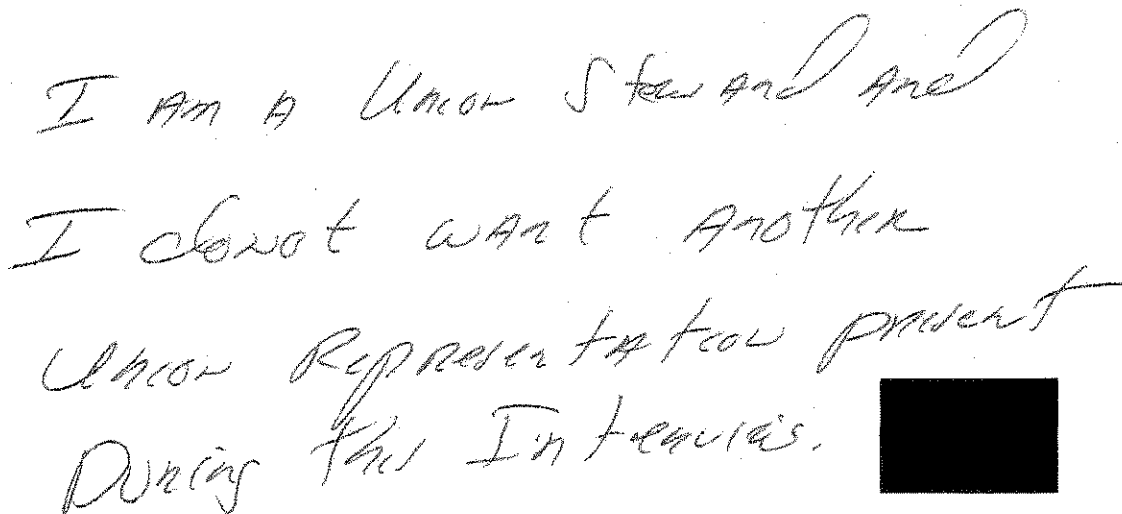 I Am A Union Steward And
I do not want Another
Union Representation present
During this Interview.